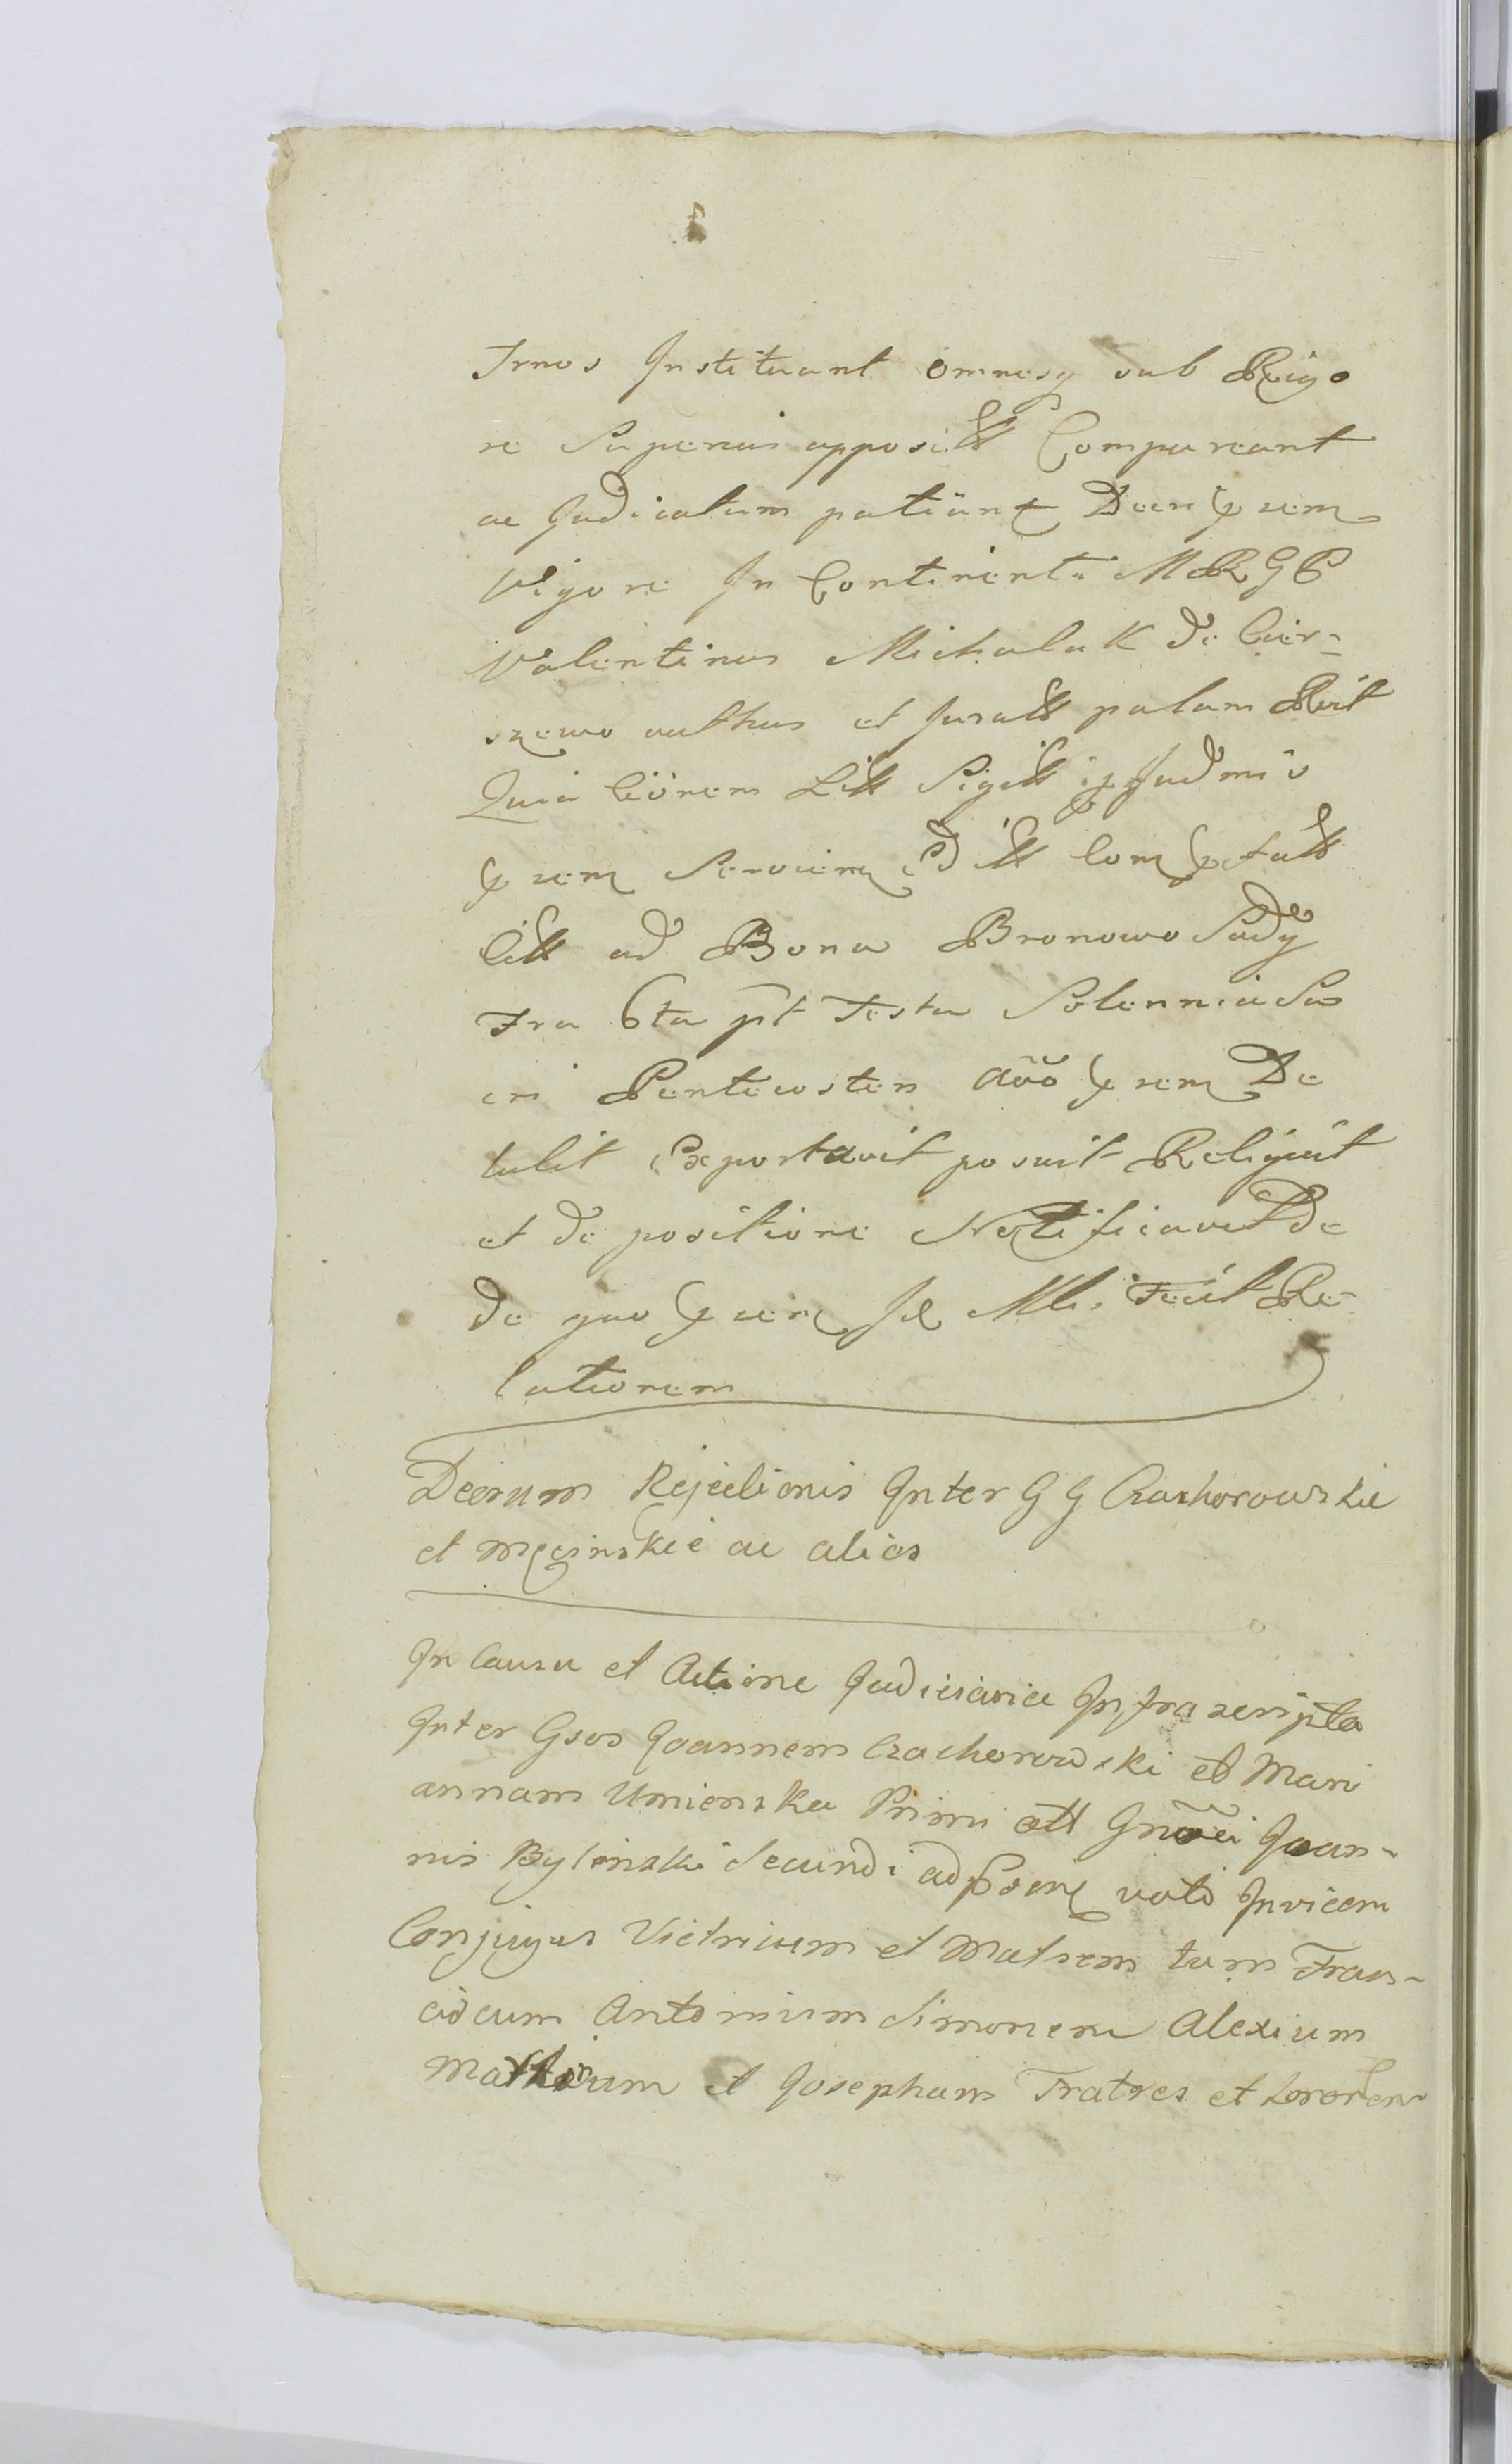 Trnos Instituant omnesq sub Rigo
re Superius apposit Compareant
ac Judicatum patiant Decr
Vigore In Continenti MRGP
Valentinus Michalak de Cier-
szewo authus et Jurat palam Rcit
Quia Cionem Litt Sigill
Servien Edit
Citt ad Bona Bronowo Sady
Fra 6ta pt Festa Solennia Sa
cri Pentecosten De
tulit Exportavit posuit Reliquit
et de positione Notificavit De
de quo Mli Fecit Re-
lationem
Decrum Rejectionis Inter G G Czachorowskie
et Męcinskie ac alios
In Causa et Actione Judiciaria Infrascripta
Inter Gsos Joannem Czachorowski et Mari
annam Umienska Primi Joan-
nis Bylinski Secundi ad voti Invicem
Conjuges Victricum et Matrem tum Fran-
ciscum Antonium Simonem Alexium
et Josepham Fratres et Sororem